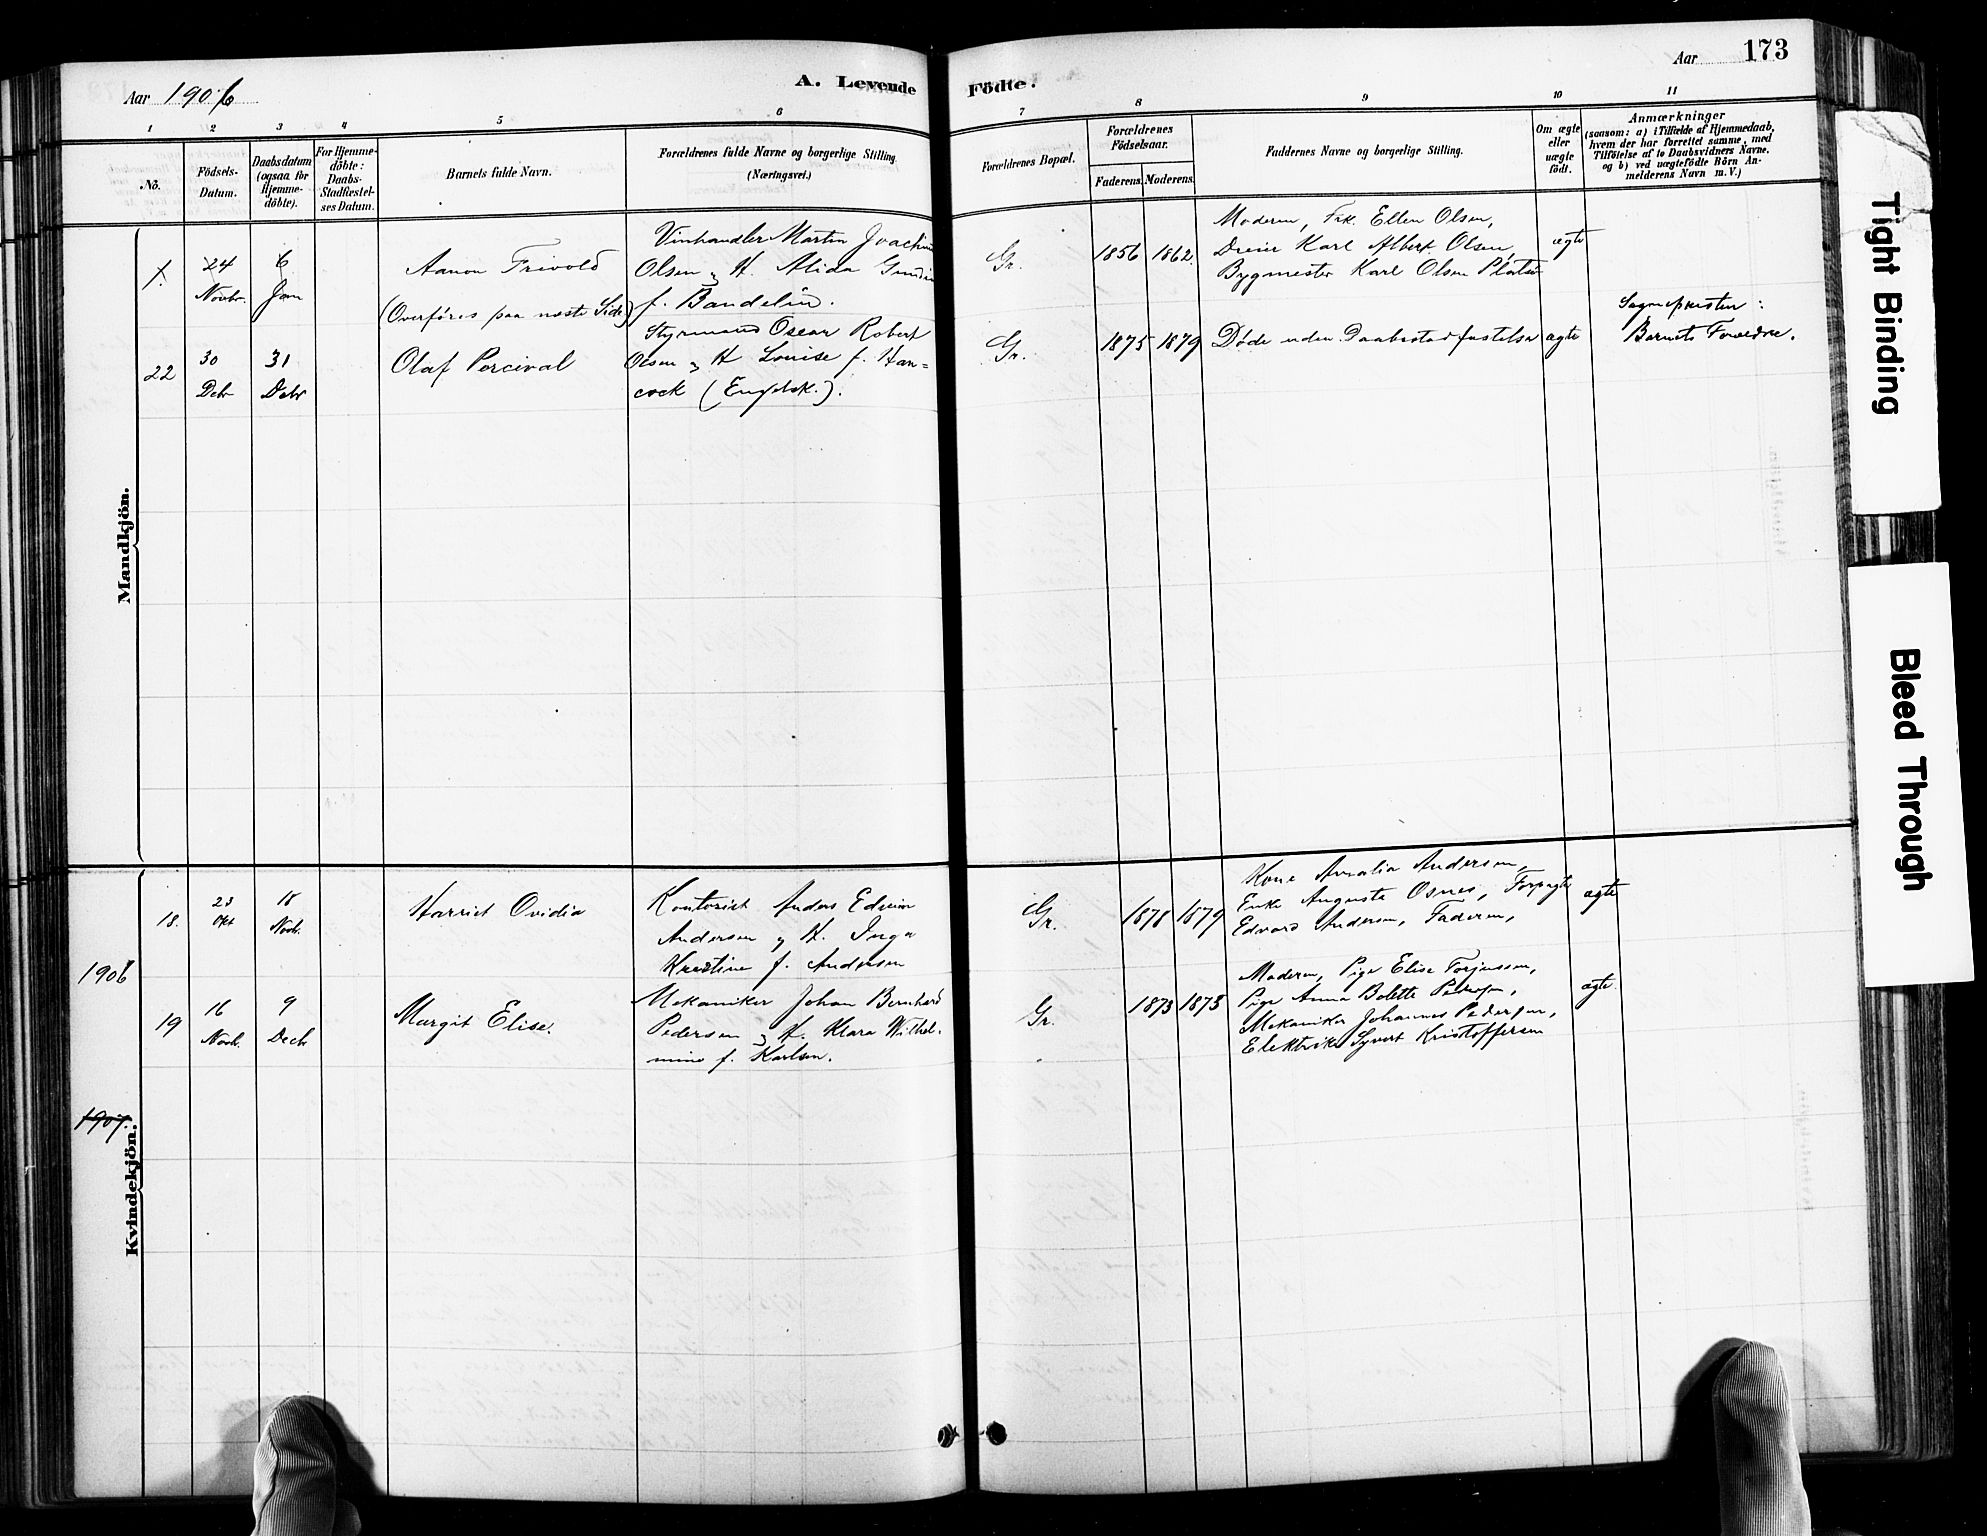 Aar 1906
A. Levende
Födte.
Aar 173
1 2 3 4 5 6 7 8 9 10 11
No.
Födsels-
Datum.
Daabsdatum
(ogsaa for
Hjemme-
döbte).
For Hjemme-
döbte:
Daabs-
Stadfæstel-
ses Datum.
Barnets fulde Navn.
Forældrenes fulde Navne og borgerlige Stilling
(Næringsvei.)
Forældrenes Bopæl.
Forældrenes
Födselsaar.
Faderens. Moderens.
Faddernes Navne og borgerlige Stilling.
Om ægte
eller
uægte
født.
Anmærkninger
(saasom: a) i Tilfælde af Hjemmedaab,
hvem der har forrettet samme, med
Tilföielse af to Daabsvidners Navne.
og b) ved uægtefödte Börn An-
melderens Navn m. V.)
Mandkjön.
1.
24
Novbr.
6
Jan
Aanon Trivold
(Overføres paa næste Side)
Vinhandler Martin Joachim
Olsen & H. Alida
f. Bandelin.
Gr.
1856 1862.
Moderen, Frk. Ellen Olsen,
Dreier Karl Albert Olsen,
Bygmester Karl Olsen
ægte
22
30
Debr
31
Debr
Olaf Percival
Styrmand Oscar Robert
Olsen & H Louise f. Han-
cock (Engelsk.).
Gr.
1875 1879
Døde uden Daabsstadfæstelse
ægte
Sognepresten:
Barnets Forældre.
18.
23
Okt
18
Novbr.
Harriet Ovidia
Kontorist Anders Edwin
Andersen & H. Inga
Kristine f. Andersen
Gr.
1878 1879
Kone Amalia Andersen,
Enke Augusta Osnes, Forpagter
Edvard Andersen, Faderen,
ægte
1906
19
16
Novbr.
9
Decbr
Margit Elise.
Mekaniker Johan Bernhard
Pedersen & H. Klara Wilhel-
mine f. Karlsen.
Gr.
1873 1873
Moderen, Pige Elise Torjussen,
Pige Anna Bolette Pedersen,
Mekaniker Johannes Pedersen,
Elektriker Syvert Kristoffersen
ægte.
1907.
Kvindekjön.
Tight Binding
Bleed Through